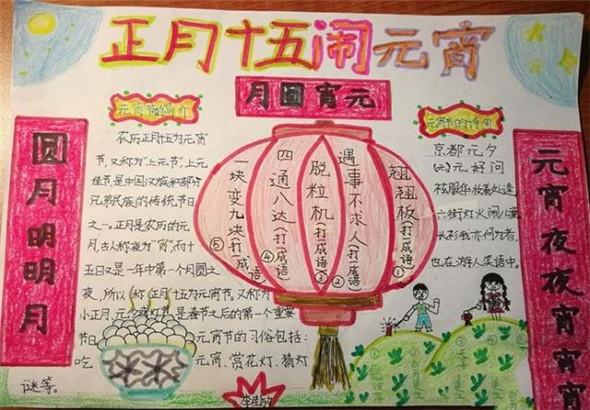 正月十五闹元宵
月圆宵元
圆月明明月
元宵节的简介
农历正月十五为元宵
节,又称为"上元节"上元
佳节是中国汉族和部分
兄弟民族的传统节日
之一。正月是农历的元
月,古人称夜为"宵",而十
五日又是一年中第一个月圆之
夜,所以称正月十五为元宵节。又称为
小正月、元夕或灯节,是春节之后的第一个重要
节日 元宵节的习俗包括:
吃 元宵、赏花灯、猜灯
谜等。
翘翘板(打一成语)①
遇事不求人(打一成语)②
脱粒机(打一成语)③
四通八达(打一成语)④
一块变九块(打一成语)⑤
元宵节的诗句
京都元夕
(元)元好问
六街灯火闹儿童
长衫我亦何为者,
也在游人笑语中。
元宵夜夜宵宵